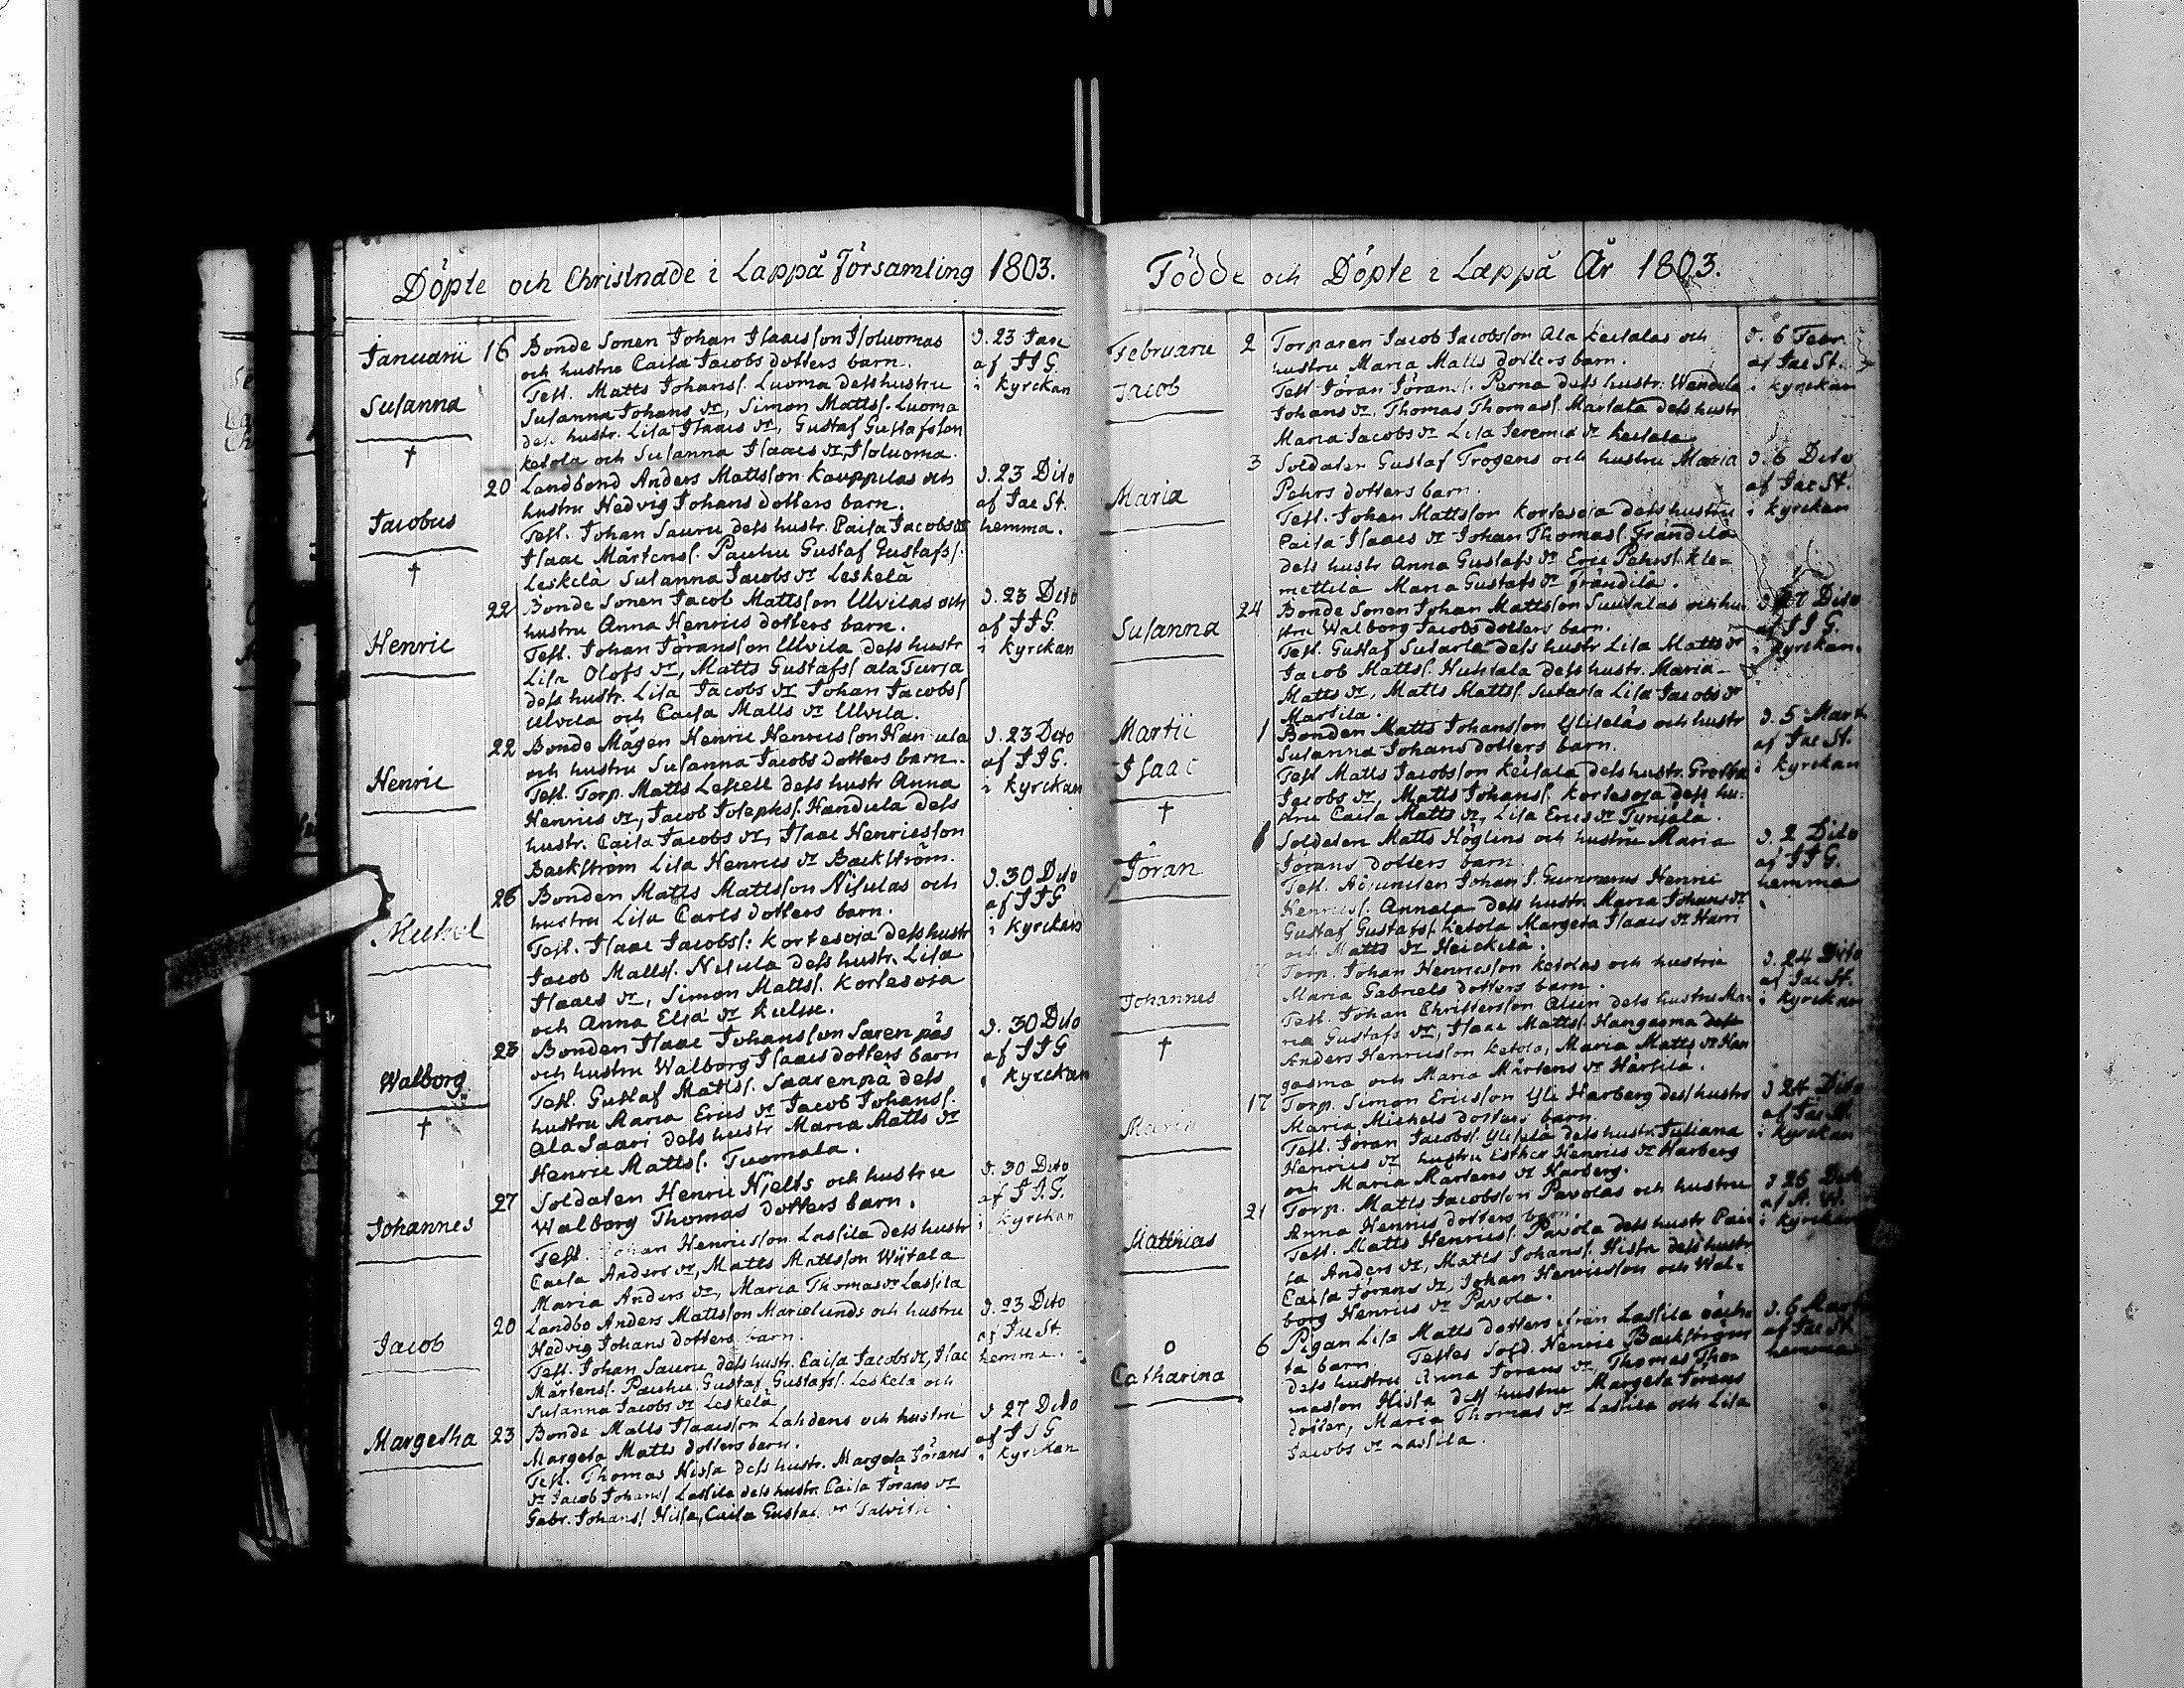 Döpte och Christnade i Lappå Församling 1803.
Januarii 16 Bonde Sonen Johan Isaacsson Isoluomas d. 23 Janr
och hustru Caisa Jacobs dotters barn. af J J G.
Test. Matts Johanss. Luoma dess hustru i kyrckan
Susanna
Susanna Johans dr, Simon Mattss. Luoma
dess hustr. Lisa Isaacs dr, Gustaf Gustafsson
† Ketola och Susanna Isaacs dr Isoluoma.
20 Landbond Anders Mattsson Kauppilas och d. 23 Dito
hustru Hedvig Johans dotters barn. af Jac St.
Jacobus Test. Johan Sauru dess hustr. Caisa Jacobs dr hemma.
Isaac Mårtenss. Pauhu Gustaf Gustafss.
† Leskelä Susanna Jacobs dr Leskelä
22 Bonde Sonen Jacob Mattsson Ulvilas och d. 23 Dito
hustru Anna Henrics dotters barn. af J J G.
Henric Test. Johan Göransson Ulvila dess hustr i kyrckan
Lisa Olofs dr, Matts Gustafss ala Turja
dess hustr. Lisa Jacobs dr Johan Jacobss
Ulvila och Caisa Matts dr Ulvila.
22 Bonde Mågen Henric Henricsson Han ula d. 23 Dito
och hustru Susanna Jacobs dotters barn. af J J G.
Henric Test. Torp. Matts Lessell dess hustr Anna i kyrckan
Henrics dr, Jacob Josephss. Handula dess
hustr. Caisa Jacobs dr, Isaac Henricsson
Backström Lisa Henrics dr Backström.
26 Bonden Matts Mattsson Nisulas och d. 30 Dito
hustru Lisa Carls dotters barn. af J J G
Michel Test. Isaac Jacobss: Kortesoja dess hustr i kyrckan
Jacob Matss. Nisula dess hustr. Lisa
Isaacs dr, Simon Mattss. Kortesoja
och Anna Elsa dr
23 Bonden Isaac Johansson Saren päs d. 30 Dito
och hustru Walborg Isaacs dotters barn af J J G
Walborg Test. Gustaf Mattss. Saarenpä dess i kyrckan
hustru Maria Erics dr Jacob Johanss.
† Ala Saari dess hustr Maria Matts dr
Henric Mattss. Tuomala.
27 Soldaten Henric Hjelts och hustru d. 30 Dito
Walborg Thomas dotters barn. af J J. G.
Johannes Test. Johan Henricsson Lassila dess hustr i kyrckan
Caisa Anders dr, Matts Mattsson Wijtala
Maria Anders dr, Maria Thomas dr Lassila
20 Landbo Anders Mattsson Marielunds och hustru d. 23 Dito
Jacob Hedvig Johans dotters barn. af Jac St.
Test. Johan Sauru dess hustr. Caisa Jacobs dr, Isac hemma.
Mårtenss. Pauhu Gustaf Gustafss. Leskela och
Susanna Jacobs dr Leskelä
Margetha 23 Bonde Matts Isaacsson Lahdens och hustru d 27 Dito
Margeta Matts dotters barn. af J J G
Test. Thomas Hissa dess hustr. Margeta Görans i kyrckan
dr Jacob Johanss Lassila dess hustr. Caisa Görans dr
Gabr. Johanss Hissa, Caisa Gustaf dr
Födde och Döpte i Lappå År 1803.
Februarii 2 Torparen Jacob Jacobsson Ala Keisalas och d. 6 Febr.
hustru Maria Matts dotters barn. af Jac St.
Jacob Test Göran Göranss. Perna dess hustr: Wendela i kyrckan
Johans dr, Thomas Thomass. Marlala dess hustr
Maria Jacobs dr Lisa Jeremiæ dr Keisala
3 Soldaten Gustaf Trogens och hustru Maria d. 6 Dito
Maria Pehrs dotters barn. af Jac St.
Test. Johan Mattsson Kortesoja dess hustru i kyrckan
Caisa Isaacs dr Johan Thomass. Frändilä
dess hustr Anna Gustafs dr Eric Pehrss. Kle=
mettilä Maria Gustafs dr Frändilä.
24 Bonde Sonen Johan Mattsson Suutalas och hu= d. 27 Dito
Susanna stru Walborg Jacobs dotters barn. af J J G.
Test. Gustaf Sutarla dess hustr Lisa Matts dr i kyrckan.
Jacob Mattss. Huhtala dess hustr. Maria
Matts dr, Matts Mattss. Sutarla Lisa Jacobs dr
Martila.
Martii 1 Bonden Matts Johansson Yliselas och hustr d. 5 Mart
Susanna Johans dotters barn. af Jac St.
Isaac Test Matts Jacobsson Keisala dess hustr. Gretha i kyrckan
Jacobs dr, Matts Johanss. Kortesoja dess hu=
† stru Caisa Matts dr, Lisa Erics dr Tynjälä.
1 Soldaten Matts Höglins och hustru Maria d. 2 Dito
Göran Görans dotters barn. af J J G.
Test. Adjuncten Johan J. Gummerus Henric hemma
Henricss. Annala dess hustr. Maria Johans dr
Gustaf Gustafss. Ketola Margeta Isaacs dr Harri
och Matts dr Heickilä.
Torp. Johan Henricsson Ketolas och hustru d. 24 Dito
Maria Gabriels dotters barn. af Jac St.
Johannes Test. Johan Christersson Alsén dess hustru Ma= i kyrckan
ria Gustafs dr, Isaac Mattss. Hangasma dess
† Anders Henricsson Ketola, Maria Matts dr Han
gasma och Maria Mårtens dr Härsilä.
17 Torp. Simon Ericsson Yli Harberg dess hustru d 24 Dito
Maria Michels dotters barn. af Jac St.
Maria Test. Göran Jacobss. Yliselä dess hustr. Juliana i kyrckan
Henrics dr hustru Esther Henrics dr Harberg
och Maria Martens dr Harberg.
21 Torp. Matts Jacobsson Pavolas och hustru d 26 Dito
Anna Henrics dotters barn.
Matthias Test. Matts Henricss. Pavola dess hustr Cai= i kyrckan
sa Anders dr, Matts Johanss. Hissa dess hustr
Caisa Görans dr, Johan Henricsson och Wal=
borg Henrics dr Pavola.
o 6 Pigan Lisa Matts dotters ifrån Lassila oächt d. 6 Mart
ta barn. Testes Sold. Henric Backström af Jac St.
Catharina dess hustru Anna Görans dr, Thomas Tho= hemma
masson Hissa dess hustru Margeta Görans
dotter, Maria Thomas dr Lassila och Lisa
Jacobs dr Lassila.